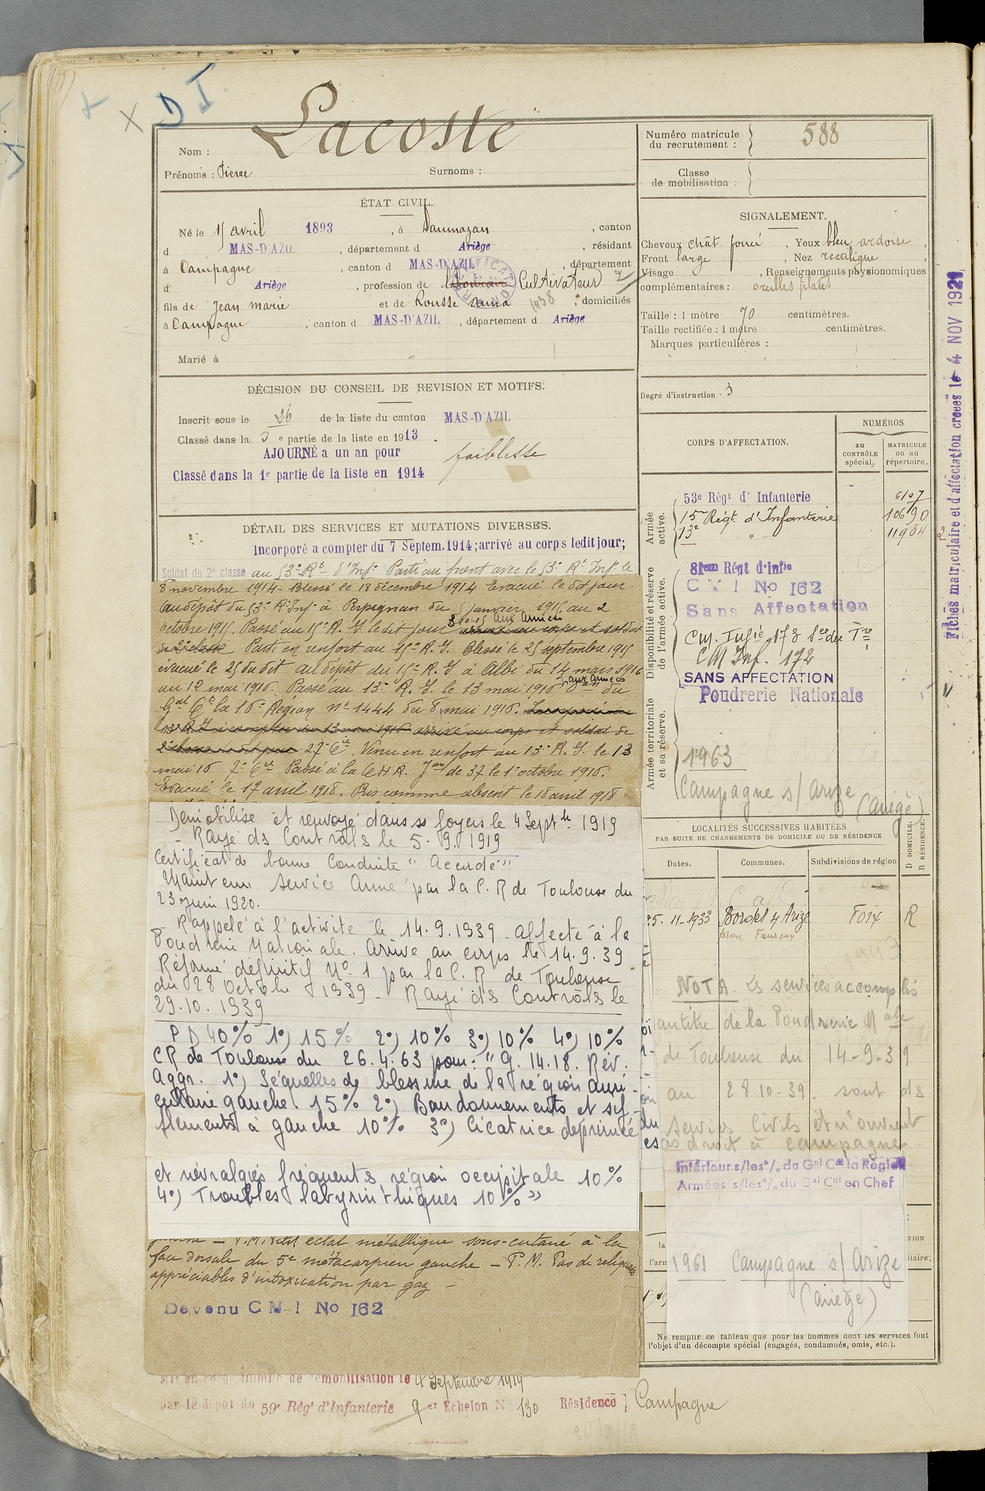 D I.
Lacoste
Nom :
Prénoms : Pierre Surnoms :
Numéro matricule du recrutement : 588
Classe de mobilisation :
ÉTAT CIVIL.
Né le 1 avril 1893, à Daumazan, canton
d MAS-D'AZIL, département d Ariège, résidant
à Campagne, canton d MAS-D'AZIL, département
d Ariège, profession de Cultivateur
fils de Jean marie et de Rousse anna, domiciliés
à Campagne, canton d MAS-D'AZIL, département d Ariège
Marié à
SIGNALEMENT.
Cheveux chât. foncé, Yeux bleu ardoise,
Front large, Nez rectiligne,
Visage , Renseignements physionomiques
complémentaires : oreilles plates
Taille : 1 mètre 70 centimètres.
Taille rectifiée : 1 mètre centimètres.
Marques particulières :
Degré d'instruction : 3
DÉCISION DU CONSEIL DE REVISION ET MOTIFS.
Inscrit sous le n° 26 de la liste du canton MAS-D'AZIL
Classé dans la 5e partie de la liste en 1913.
AJOURNÉ a un an pour faiblesse
Classé dans la 1e partie de la liste en 1914
DÉTAIL DES SERVICES ET MUTATIONS DIVERSES.
Incorporé a compter du 7 Septem. 1914; arrivé au corps ledit jour;
Soldat de 2e classe au 53e Rt d'Infie Parti au front avec le 53e Rt Inf. le
8 novembre 1914. Blessé le 18 décembre 1914 Evacué le dit jour
au dépôt du 53e R. Inf. à Perpignan du 5 janvier 1915 au 2
octobre 1915. Passé au 15e R. I. le dit jour 3-10-15 aux Armées arrivé au corps et soldat
de 2e classe Parti en renfort au 15e R. I. Blessé le 25 septembre 1915
évacué le 25 du dit au dépôt du 15e R. I. à Albi du 14 mars 1916
au 12 mai 1916. Passé au 13e R. I. le 13 mai 1916 aux armées du
Gal Ct la 16e Région no 1444 du 8 mai 1916.
27e Cie. Venu en renfort au 13e R. I. le 13
mai 16 7e Cie Passé à la CHR. de 37 le 1er octobre 1916.
Evacué le 17 avril 1918. Pris comme absent le 18 avril 1918
Démobilisé et renvoyé dans ses foyers le 4 Septbre 1919
- Rayé ds Contrôls le 5. 9. 1919
Certificat de bonne Conduite "Accordé"
Maintenu service Armé par la C. R de Toulouse du
23 juin 1920.
- Rappelé à l'activité le 14. 9. 1939 - affecté à la
Poudrerie Nationale. Arrivé au corps le 14. 9. 39
Réformé définitif No 1 par la C. R de Toulouse
du 28 Octobre 1939 - Rayé ds Contrôls le
29. 10. 1939
P D 40% 1°) 15% 2°) 10% 3°) 10% 4°) 10%
CR de Toulouse du 26. 4. 63 pour: "G. 14. 18. Rév.
Aggr. 1°) Séquelles de blessure de la région auri-
culaire gauche. 15% 2°) Bourdonnements et sif-
flements à gauche 10% 3°) Cicatrice déprimée
et névralgies fréquents région occipitale 10%
4°) Troubles labyrinthiques 10%"
- P.M. Petit éclat métallique sous-cutané à la
face dorsale du 5e métacarpien gauche - P. M. Pas de reliquats
appréciables d'intoxication par gaz -
Devenu C M I No 162
Mis en congé illimité de démobilisation le 4 Septembre 1919
par le dépôt du 59e Régt d'Infanterie 9er Echelon N° 130 Résidence } Campagne
CORPS D'AFFECTATION.
NUMÉROS
au CONTRÔLE spécial.
MATRICULE ou au répertoire.
Armée active.
53e Régt d'Infanterie 6107
15e Régt d'Infanterie 10690
13e " " 11904
Disponibilité et réserve de l'armée active.
81em Régt d'Infie
C M I No 162
Sans Affectation
CM. Infie 173 Son du Tre
CM Inf. 172
SANS AFFECTATION
Poudrerie Nationale
Armée territoriale et sa réserve.
1963
Campagne s/ Arize
(Ariège)
LOCALITÉS SUCCESSIVES HABITÉES
PAR SUITE DE CHANGEMENTS DE DOMICILE OU DE RÉSIDENCE
Dates. Communes. Subdivisions de région D DOMICILE. R RÉSIDENCE.
25. 11-1933 Bordes s/ Arize Foix R
NOTA. Ls services accomplis
au titre de la Poudrerie Nale
de Toulouse du 14-9-39
au 28.10-39. sont ds
services Civils et n'ouvrent
pas droit à campagne
Intérieur s/les o/. du Gal Cdt la Région
Armées s/les o/. du Gal Cdt en Chef
1961 Campagne s/ Arize
(Ariège)
Ne remplir ce tableau que pour les hommes dont les services font
l'objet d'un décompte spécial (engagés, condamnés, omis, etc.).
Fiches matriculaire et d'affectation créées le 4 NOV 1921